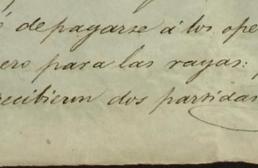 depagarse á los ope
ero para las rayas:
recibieron dos partidas